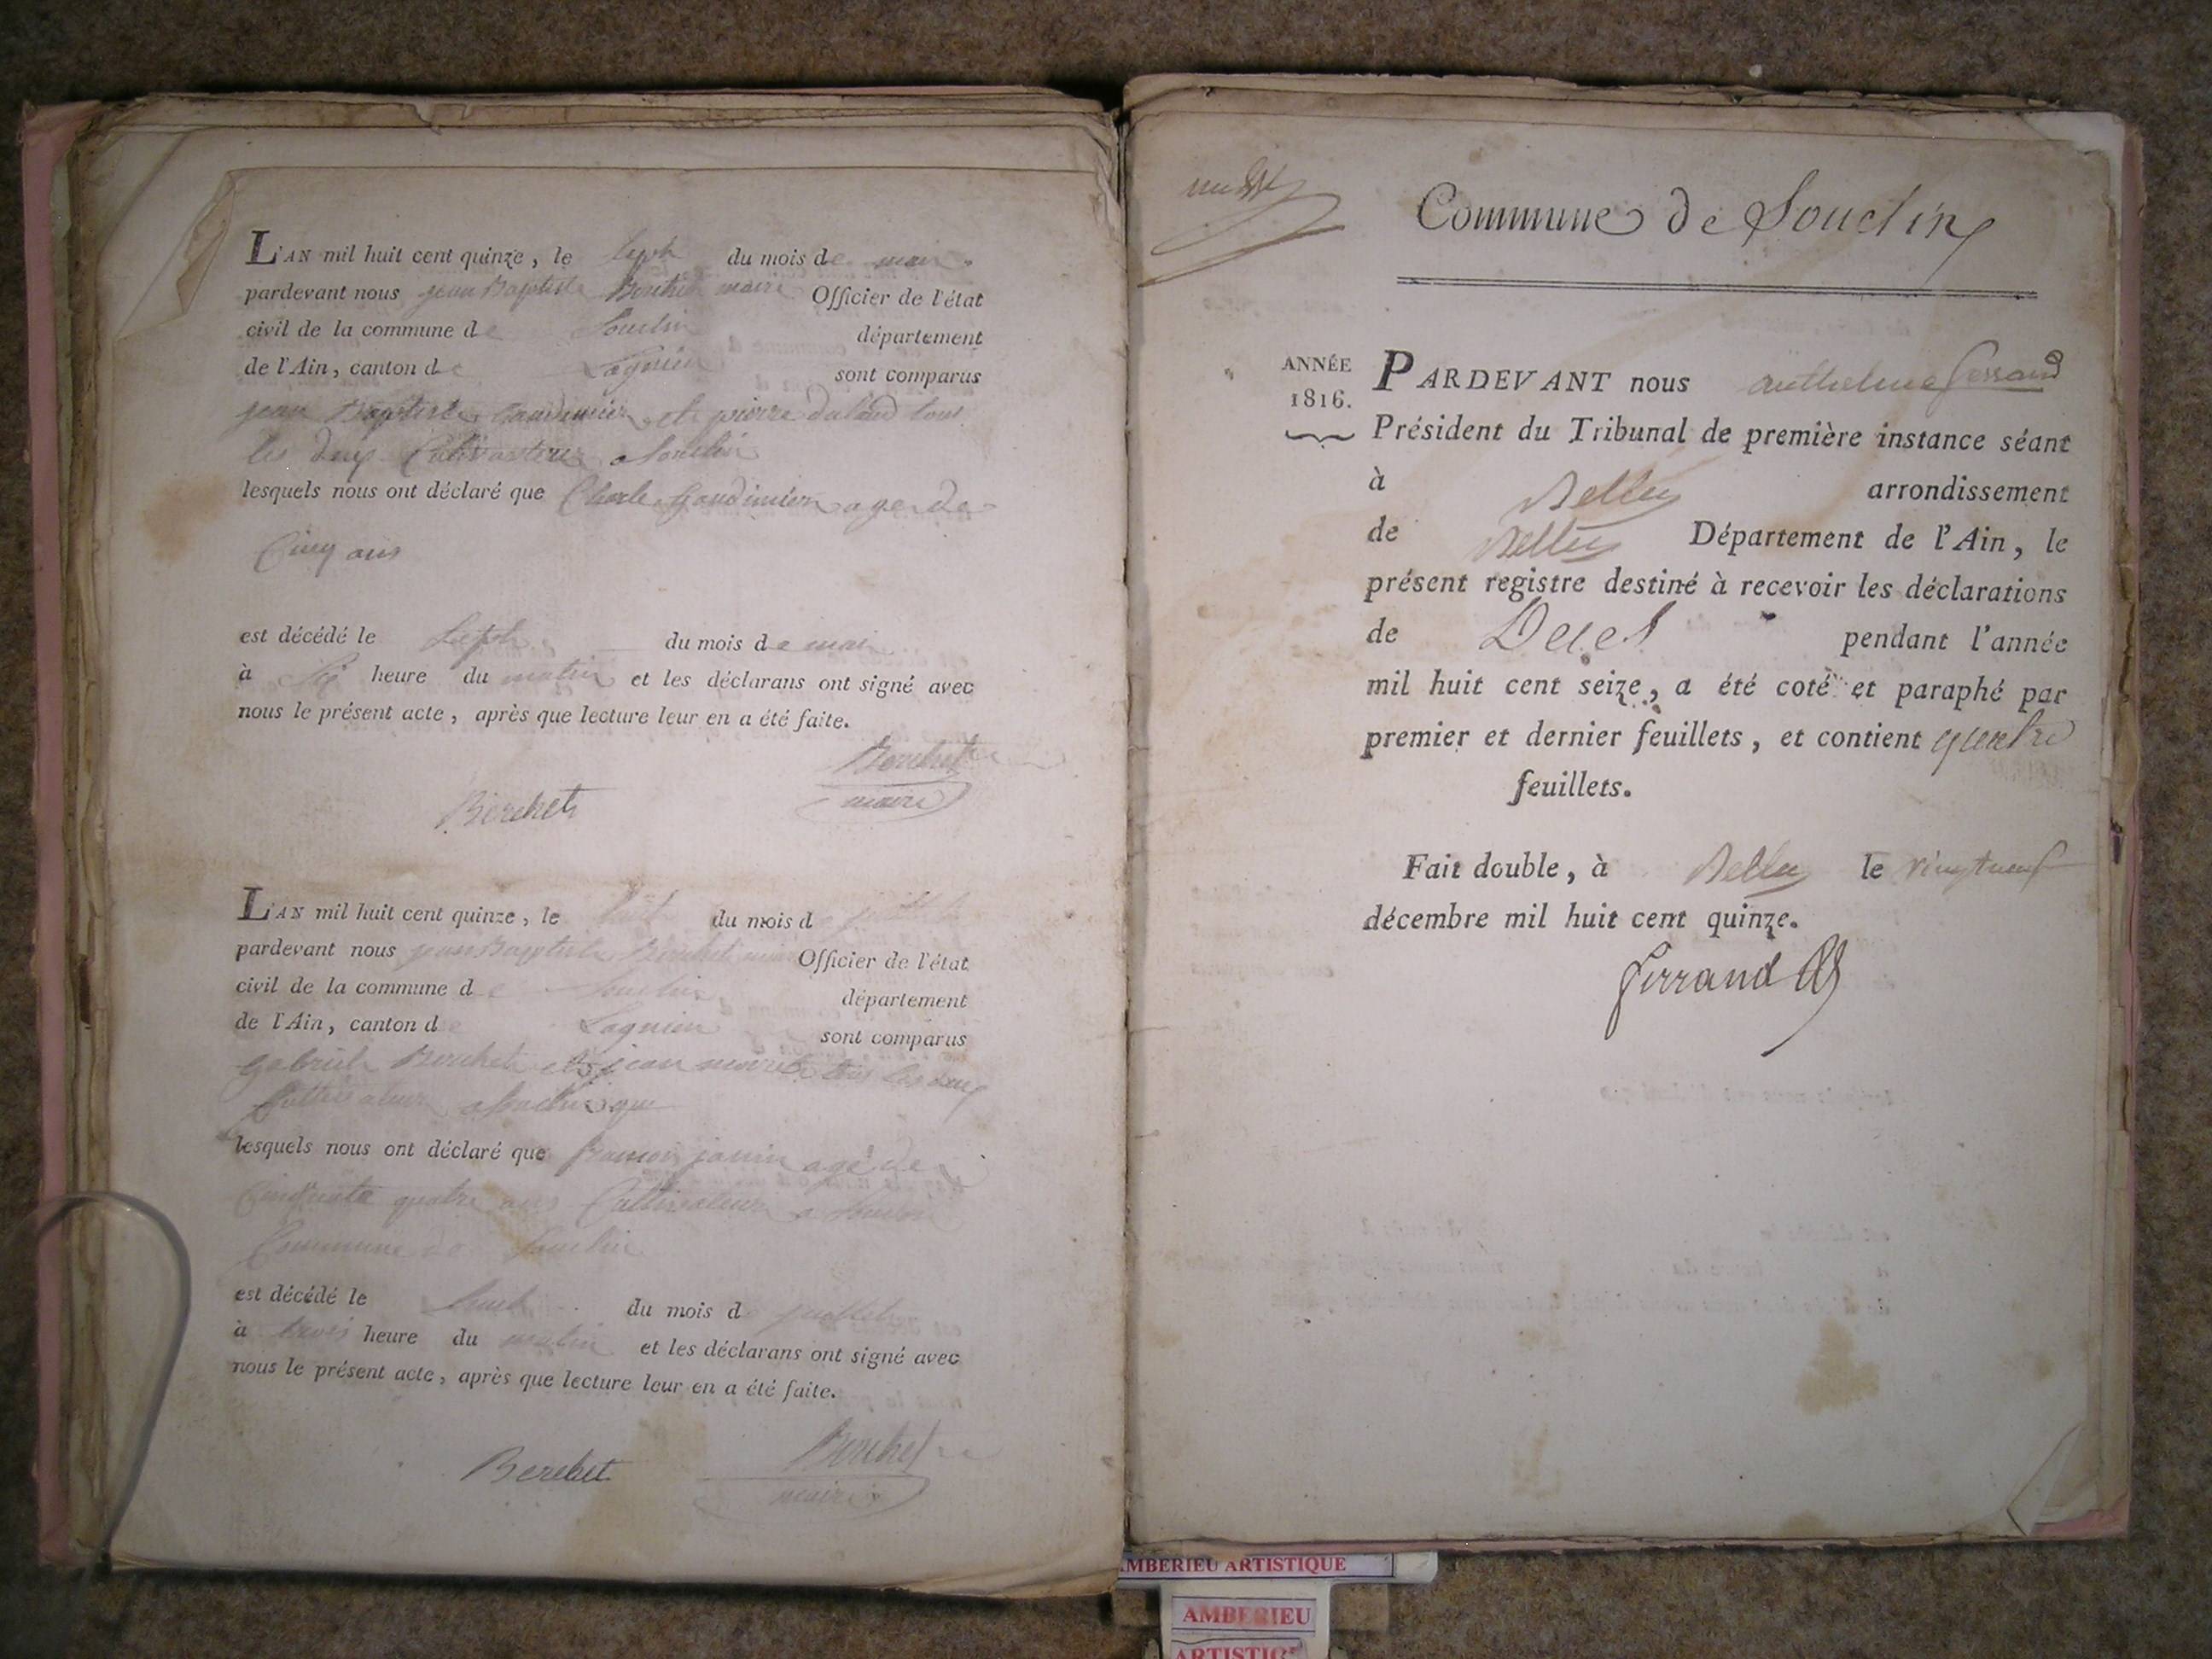 L'AN mil huit cent quinze, le sept du mois de mai
pardevant nous jean Baptiste Berchet maire Officier de l'état
civil de la commune de Souclin département
de l'Ain, canton de Lagnieu sont comparus
jean Baptiste Gaudimier et pierre tous
les deux Cultivateurs a Souclin
lesquels nous ont déclaré que Charle Gaudimier age de
Cinq ans
est décédé le sept du mois de mai
à heure du matin et les déclarans ont signé avec
nous le présent acte, après que lecture leur en a été faite.
Berchet
Berchet
maire
L'AN mil huit cent quinze, le huit du mois de juillet
pardevant nous jean Baptiste Berchet maire Officier de l'état
civil de la commune de Souclin département
de l'Ain, canton de Lagnieu sont comparus
Gabriel Berchet et jean tous les deux
Cultivateur a Souclin
lesquels nous ont déclaré que francois janin agé de
Cinquante quatre ans Cultivateur a
Commune de Souclin
est décédé le huit du mois de juillet
à trois heure du matin et les déclarans ont signé avec
nous le présent acte, après que lecture leur en a été faite.
Berchet
Berchet
maire
Commune de Souclin
ANNÉE
1816.
PARDEVANT nous anthelme ferrand
Président du Tribunal de première instance séant
à Belley arrondissement
de Belley Département de l'Ain, le
présent registre destiné à recevoir les déclarations
de Deces pendant l'année
mil huit cent seize, a été coté et paraphé par
premier et dernier feuillets, et contient quatre
feuillets.
Fait double, à Belley le vingt neuf
décembre mil huit cent quinze.
ferrand
AMBERIEU ARTISTIQUE
AMBERIEU
ARTISTIQUE